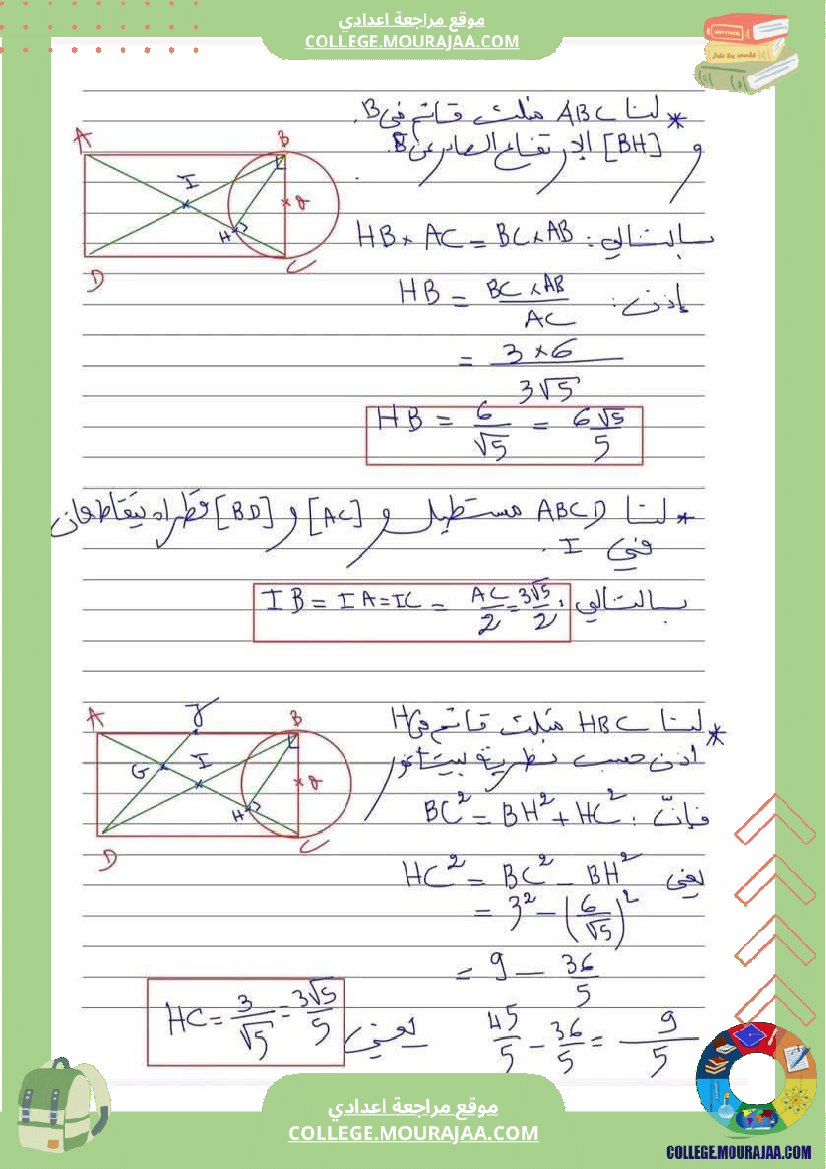 موقع مراجعة اعدادي
COLLEGE.MOURAJAA.COM
* لنا ABC مثلث قائم في B.
و [BH] الإرتفاع الصادر عن B.
A B I O H D C
بالتالي: HB × AC = BC × AB
إذن: HB = BC × AB / AC
= 3 × 6 / 3√5
HB = 6/√5 = 6√5/5
* لنا ABCD مستطيل و [AC] و [BD] قطراه يتقاطعان
في I.
بالتالي: IB = IA = IC = AC/2 = 3√5/2
A J B G I O H D C
* لنا HBC مثلث قائم في H
اذن حسب نظرية بيتاغور
فإنّ: BC² = BH² + HC²
يعني HC² = BC² - BH²
= 3² - (6/√5)²
= 9 - 36/5
45/5 - 36/5 = 9/5
يعني HC = 3/√5 = 3√5/5
موقع مراجعة اعدادي
COLLEGE.MOURAJAA.COM
COLLEGE.MOURAJAA.COM